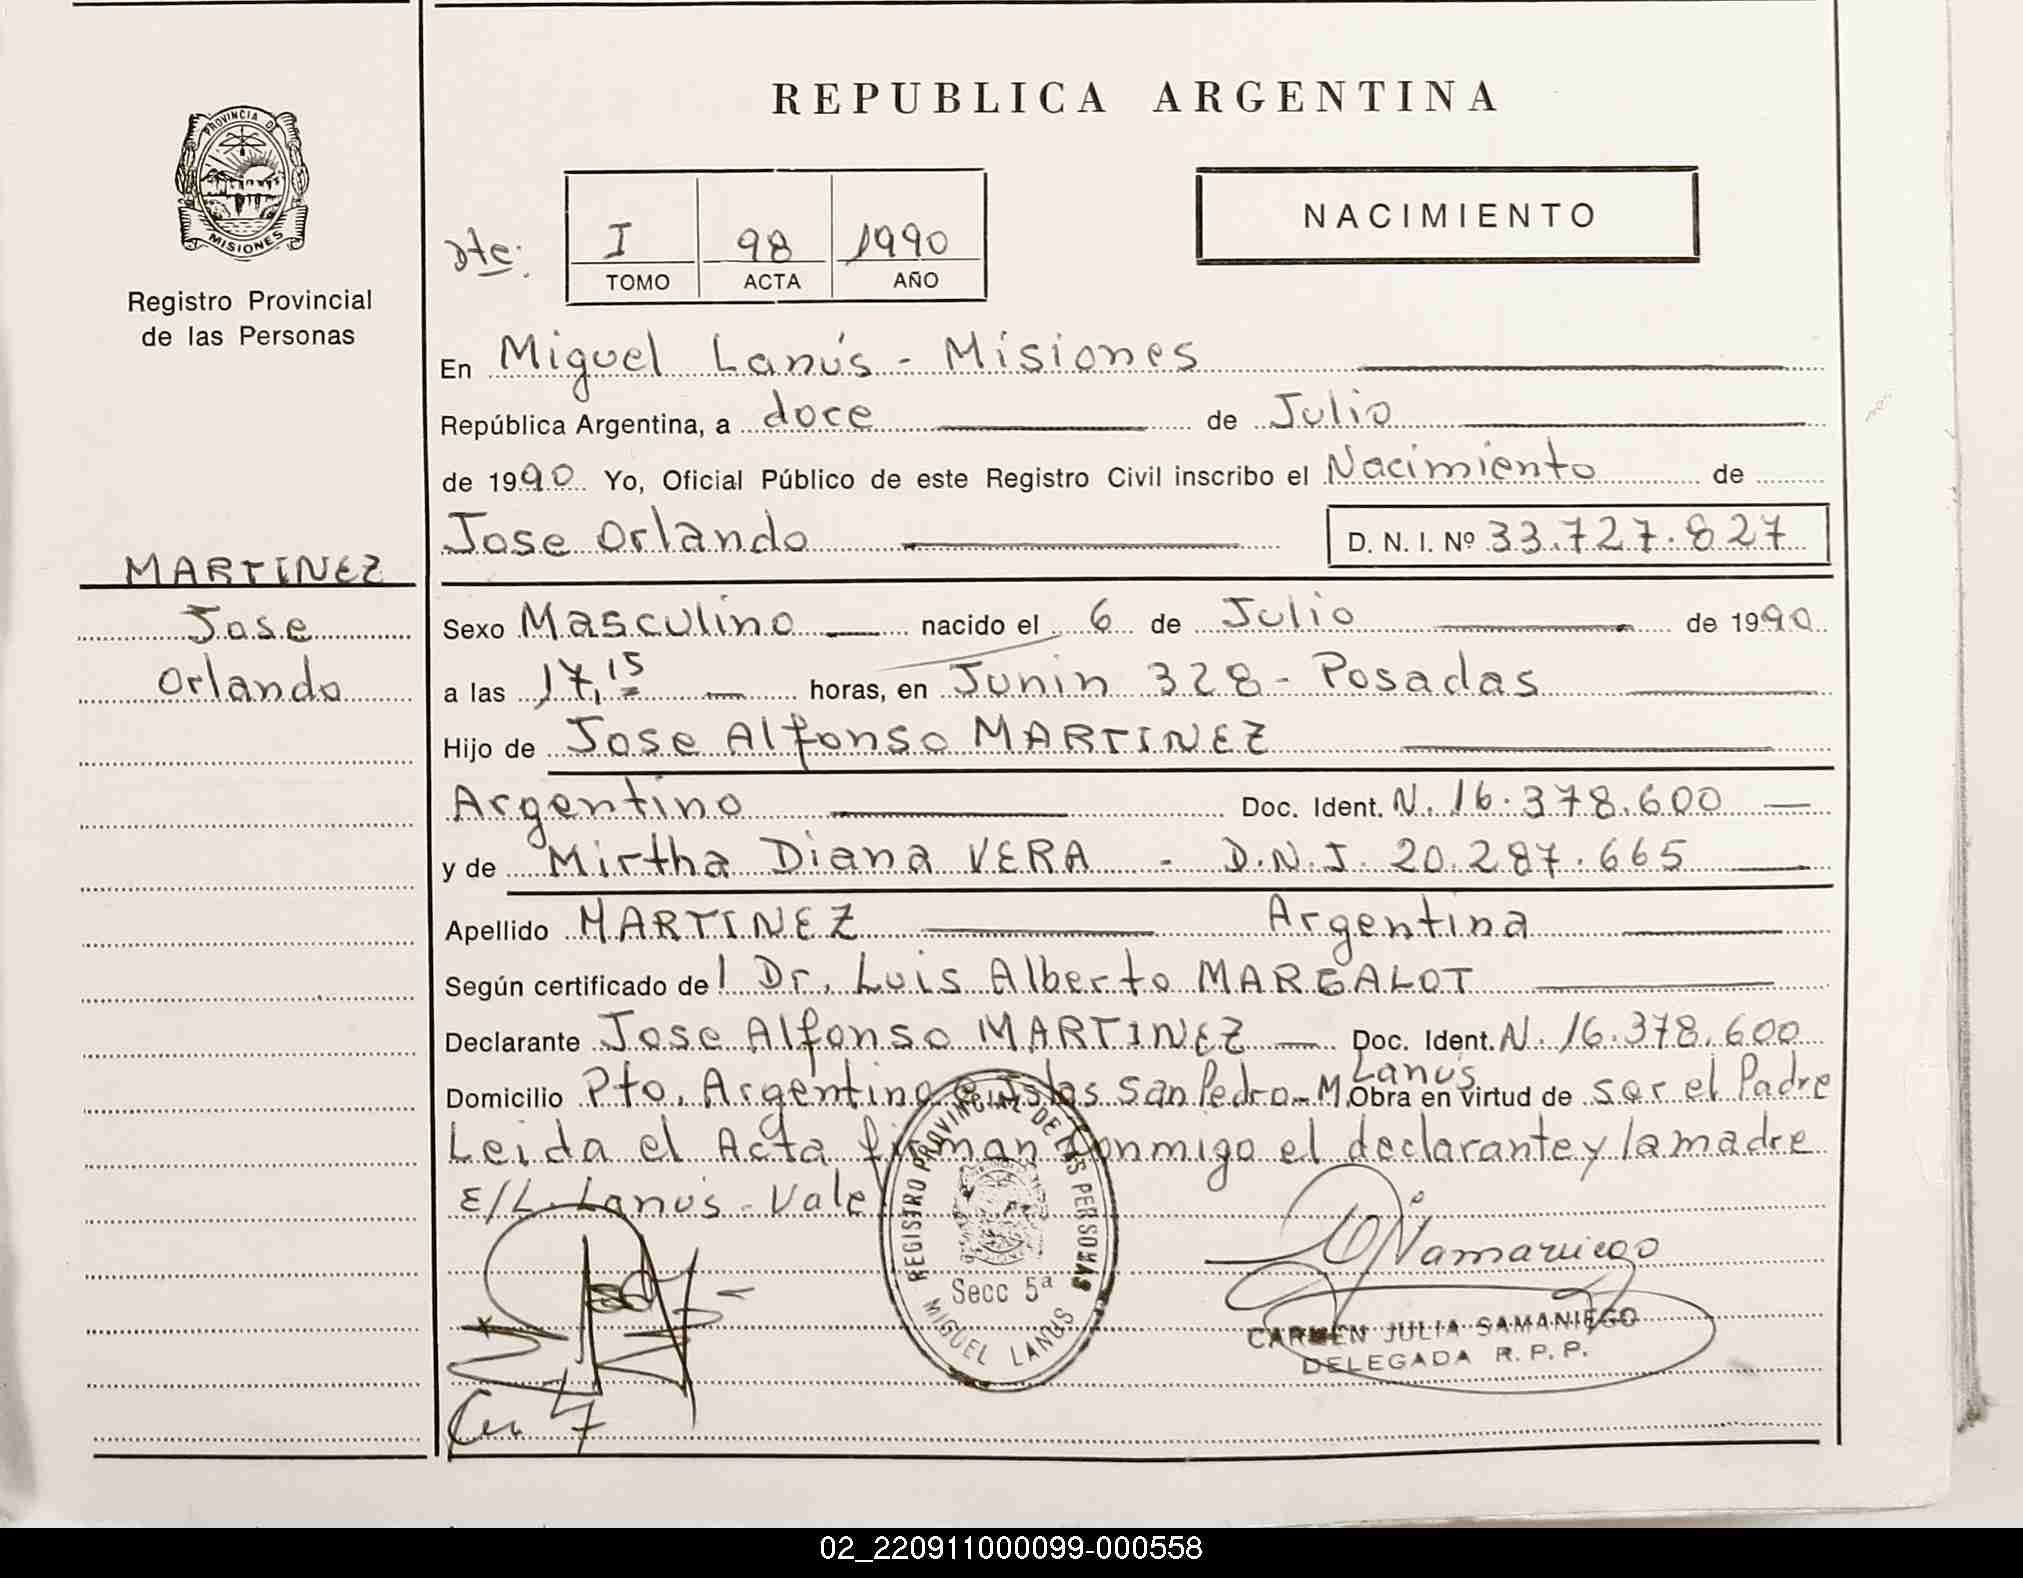 REPUBLICA ARGENTINA
PROVINCIA D
MISIONES
Registro Provincial
de las Personas
NACIMIENTO
I 98 1990
TOMO ACTA AÑO
En Miguel Lanús - Misiones
República Argentina, a doce de Julio
de 1990 Yo, Oficial Público de este Registro Civil inscribo el Nacimiento de
Jose Orlando D. N. I. Nº 33.727.827
MARTINEZ
Jose
Orlando
Sexo Masculino nacido el 6 de Julio de 1990
a las 17,15 horas, en Junin 328 - Posadas
Hijo de Jose Alfonso MARTINEZ
Argentino Doc. Ident. N. 16.378.600
y de Mirtha Diana VERA - D.N.I. 20.287.665
Apellido MARTINEZ Argentina
Según certificado del Dr. Luis Alberto MARGALOT
Declarante Jose Alfonso MARTINEZ Doc. Ident. N. 16.378.600
Lanús
Domicilio Pto. Argentino e Islas San Pedro - M. Obra en virtud de ser el Padre
Leida el Acta firman conmigo el declarante y la madre
E/L. Lanús - Vale
REGISTRO PROVINCIAL DE LAS PERSONAS
Secc 5ª
MIGUEL LANUS
CARMEN JULIA SAMANIEGO
DELEGADA R. P. P.
02_220911000099-000558